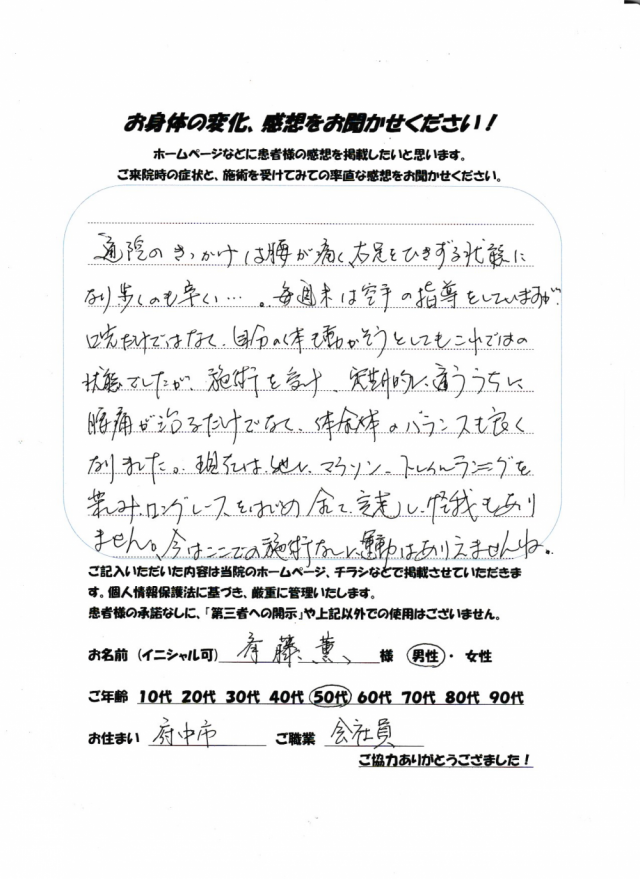 お身体の変化、感想をお聞かせください！
ホームページなどに患者様の感想を掲載したいと思います。
ご来院時の症状と、施術を受けてみての率直な感想をお聞かせください。
通院のきっかけは腰が痛く、右足をひきずる状態に
なり歩くのも辛く…。毎週末は空手の指導をしていますが、
口先だけではなく、自分の体も動かそうとしてもこれではの
状態でしたが、施術を受け、定期的に通ううちに
腰痛が治るだけでなく、体全体のバランスも良く
なりました。現在は、マラソン、トレイルランニングを
楽しみ、ロングレースをはじめ全て完走し、怪我もあり
ません。今はここでの施術なしに運動はありえませんね。
ご記入いただいた内容は当院のホームページ、チラシなどで掲載させていただきま
す。個人情報保護法に基づき、厳重に管理いたします。
患者様の承諾なしに、「第三者への開示」や上記以外での使用はございません。
お名前（イニシャル可） 斉藤 薫 様 男性・女性
ご年齢 10代 20代 30代 40代 50代 60代 70代 80代 90代
お住まい 府中市 ご職業 会社員
ご協力ありがとうござました！